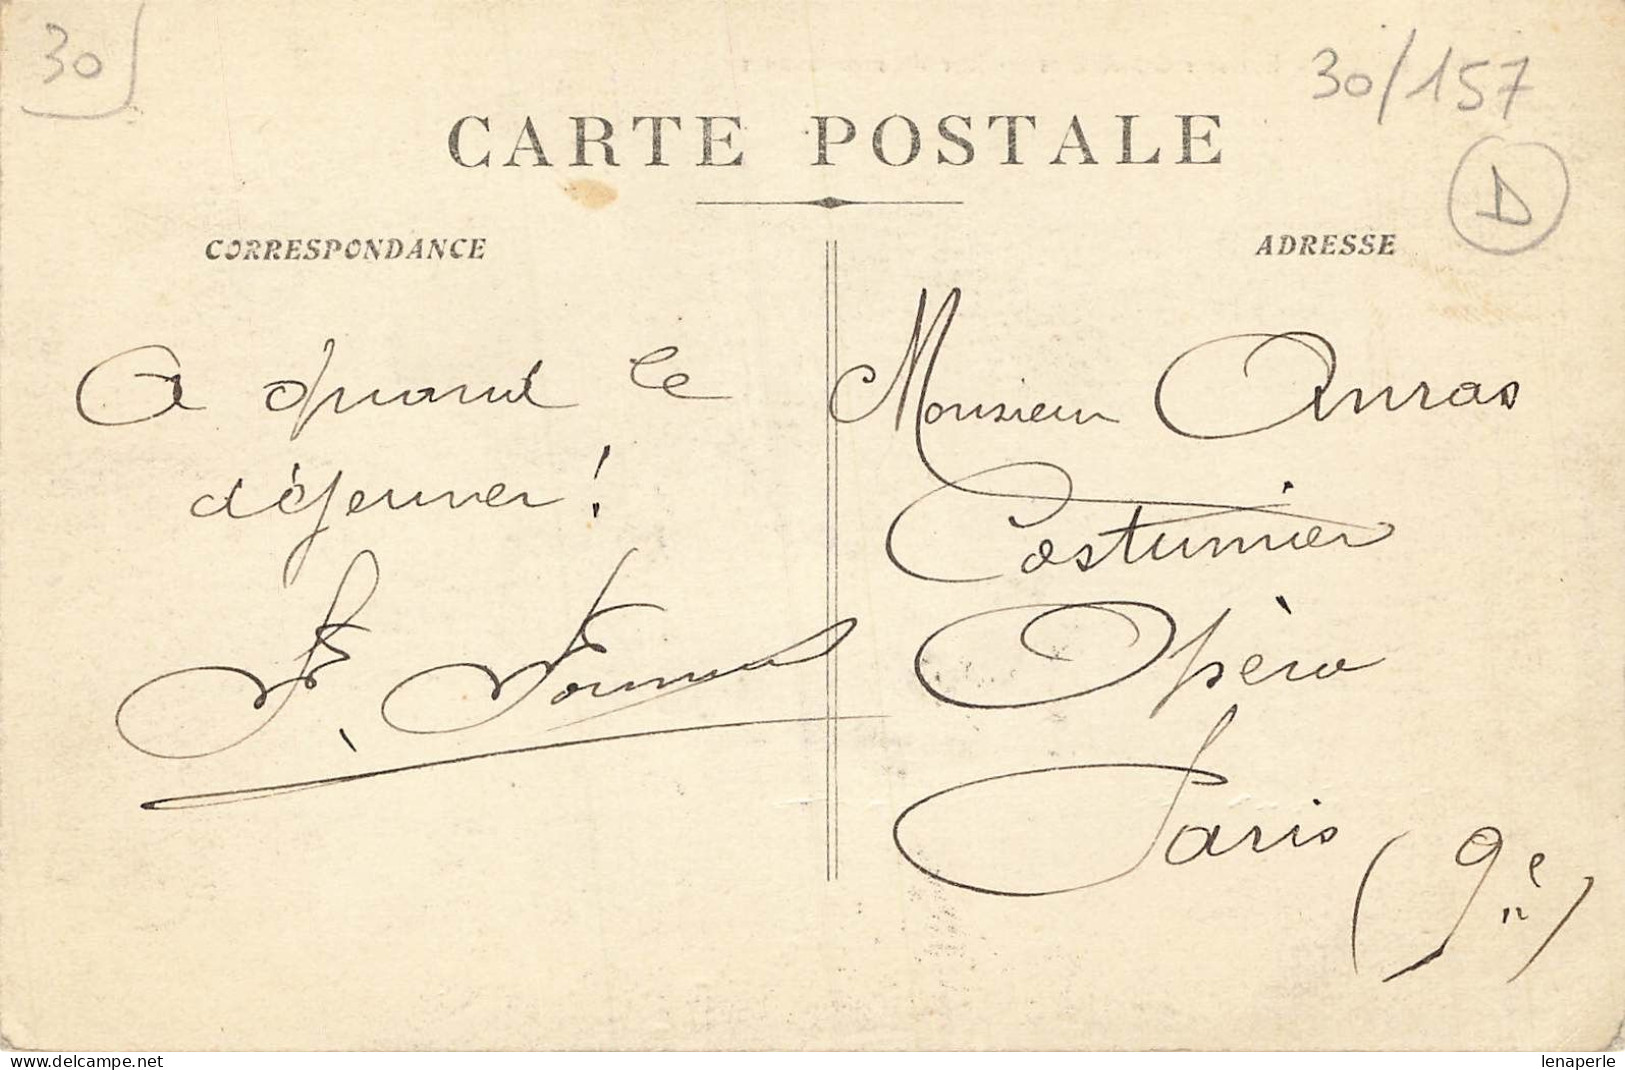 30
30/157
D
CARTE POSTALE
CORRESPONDANCE
ADRESSE
A quand le
déjeuner !
Monsieur
Costumier
Opèra
Paris
(9e)
delcampe.net
lenaperle